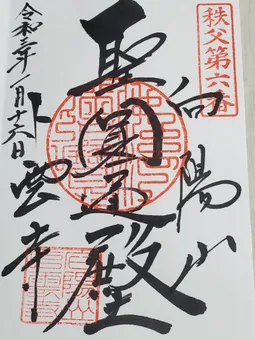 秩父第六番
向陽山
聖圓通殿
令和三年一月十六日
卜雲寺